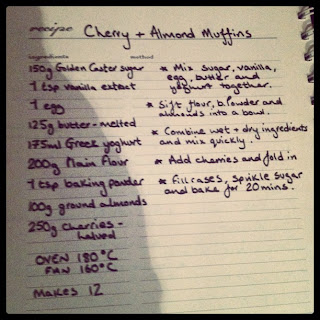 recipe Cherry + Almond Muffins
ingredients
150g Golden Caster sugar
1 tsp vanilla extract
1 egg
125g butter - melted
175ml Greek yoghurt
200g Plain Flour
1 tsp baking powder
100g ground almonds
250g cherries -
halved
OVEN 180°C
FAN 160°C
Makes 12
method
* Mix sugar, vanilla,
egg, butter and
yoghurt together.
* Sift flour, b.powder and
almonds into a bowl.
* Combine wet + dry ingredients
and mix quickly.
* Add cherries and fold in
* Fill cases, sprinkle sugar
and bake for 20mins.